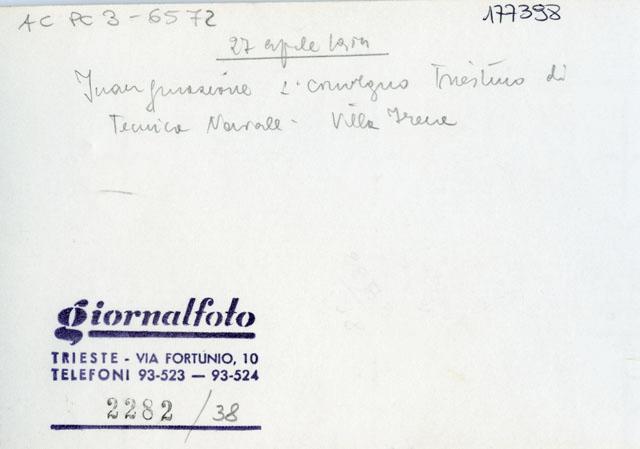 AC PC 3 - 6572
177398
27 aprile
Inaugurazione 1° convegno Triestino di
Tecnica Navale - Villa Irene
giornalfoto
TRIESTE - VIA FORTUNIO, 10
TELEFONI 93-523 — 93-524
2282 / 38